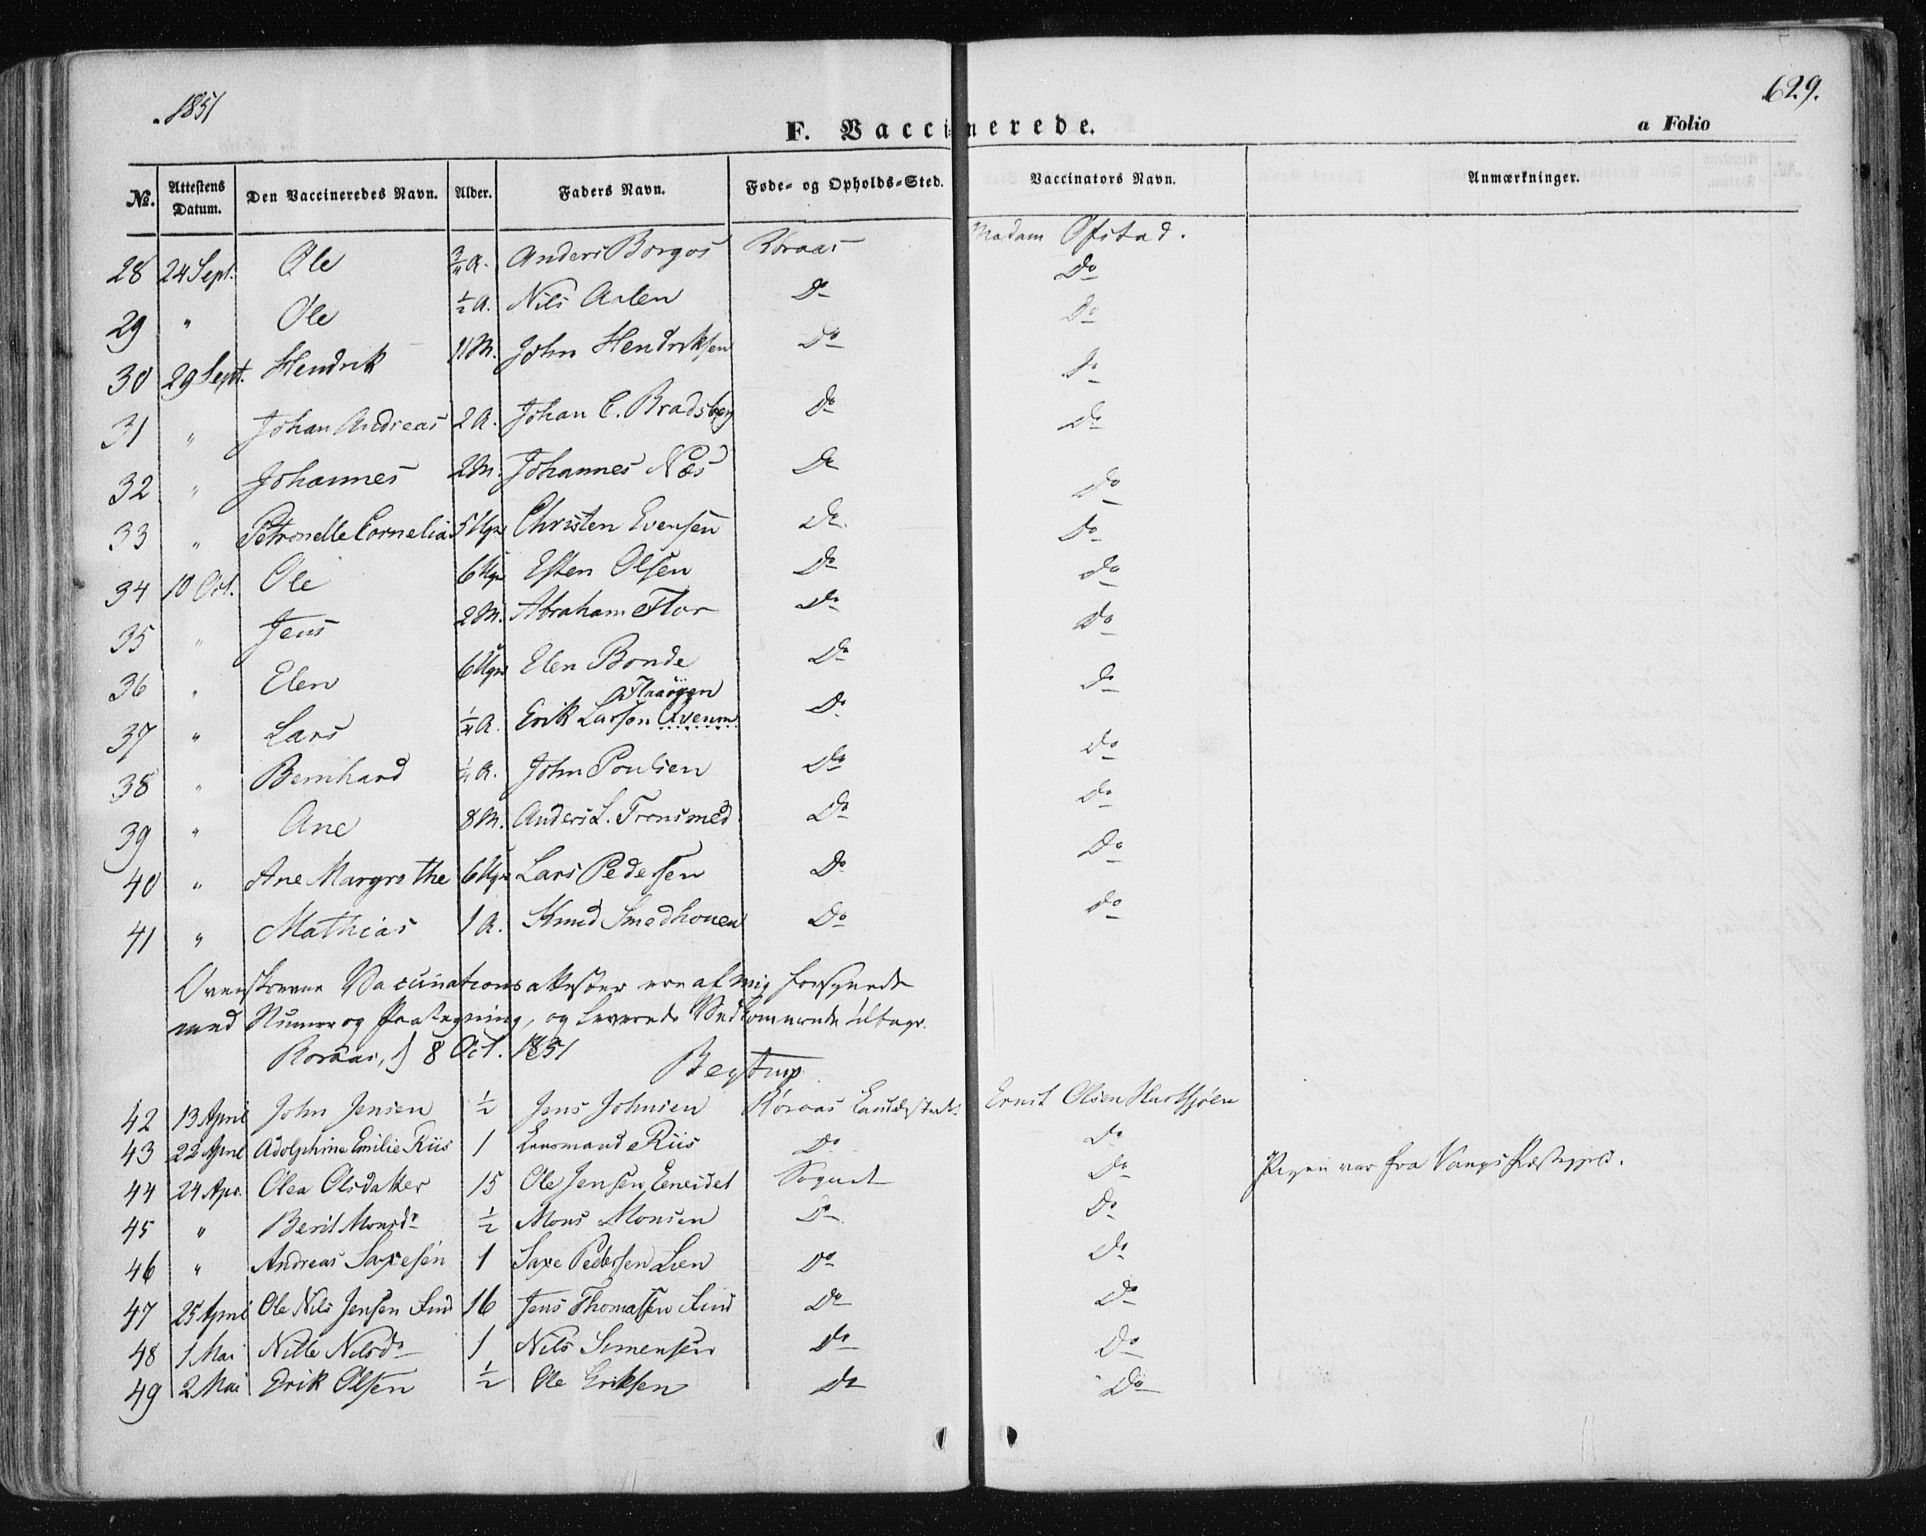 1851
629.
F. Vaccinerede.
a Folio
№. Attestens Datum. Den Vaccineredes Navn. Alder. Faders Navn. Føde- og Opholds-Sted. Vaccinators Navn. Anmærkninger.
28 24 Sept. Ole 3/4 A. Anders Borgos Röraas Madam Öfstad.
29 " Ole 1/2 A. Nils Aalen Do Do
30 29 Sept. Hendrik 11 M. John Hendriksen Do Do
31 " Johan Andreas 2 A. Johan C. Bradsberg Do Do
32 " Johannes 2 M. Johannes Næs Do Do
33 " Petronelle Cornelia 5 Ugr Christen Evensen Do Do
34 10 Oct. Ole 6 Ugr Esten Olsen Do Do
35 " Jens 2 M. Abraham Flor Do Do
36 " Elen 6 Ugr Elen Bonde Do Do
37 " Lars 1/4 A. Erik Larsen Do Do
38 " Bernhard 1/4 A. John Poulsen Do Do
39 " Ane 8 M. Anders L. Tronsmed Do Do
40 " Ane Margrethe 6 Ugr Lars Pedersen Do Do
41 " Mathias 1 A. Knud Smedhouen Do Do
Ovenskrevne Vaccinationsattester ere af mig forsynede
med Numer og Paategning, og leverede Vedkommende tilbage.
Roraas, 8 Oct. 1851
Begtrup
42 13 April John Jensen 1/2 Jens Johnsen Röraas Landsogn Ernst Olsen Harsjøen
43 22 April Adolphine Emilie Riis 1 Lensmand Riis Do Do
44 24 Apr. Olea Olsdatter 15 Ole Jensen Eneidet Sognet Do Pigen var fra Vangs Præstegjeld.
45 " Berit Monsdr 1/2 Mons Monsen Do Do
46 " Andreas Saxesen 1 Saxe Pedersen Lien Do Do
47 25 April Ole Nils Jensen Sund 16 Jens Thomassen Sund Do Do
48 1 Mai Nille Nilsdr 1 Nils Simensen Do Do
49 2 Mai Erik Olsen 1/2 Ole Eriksen Do Do